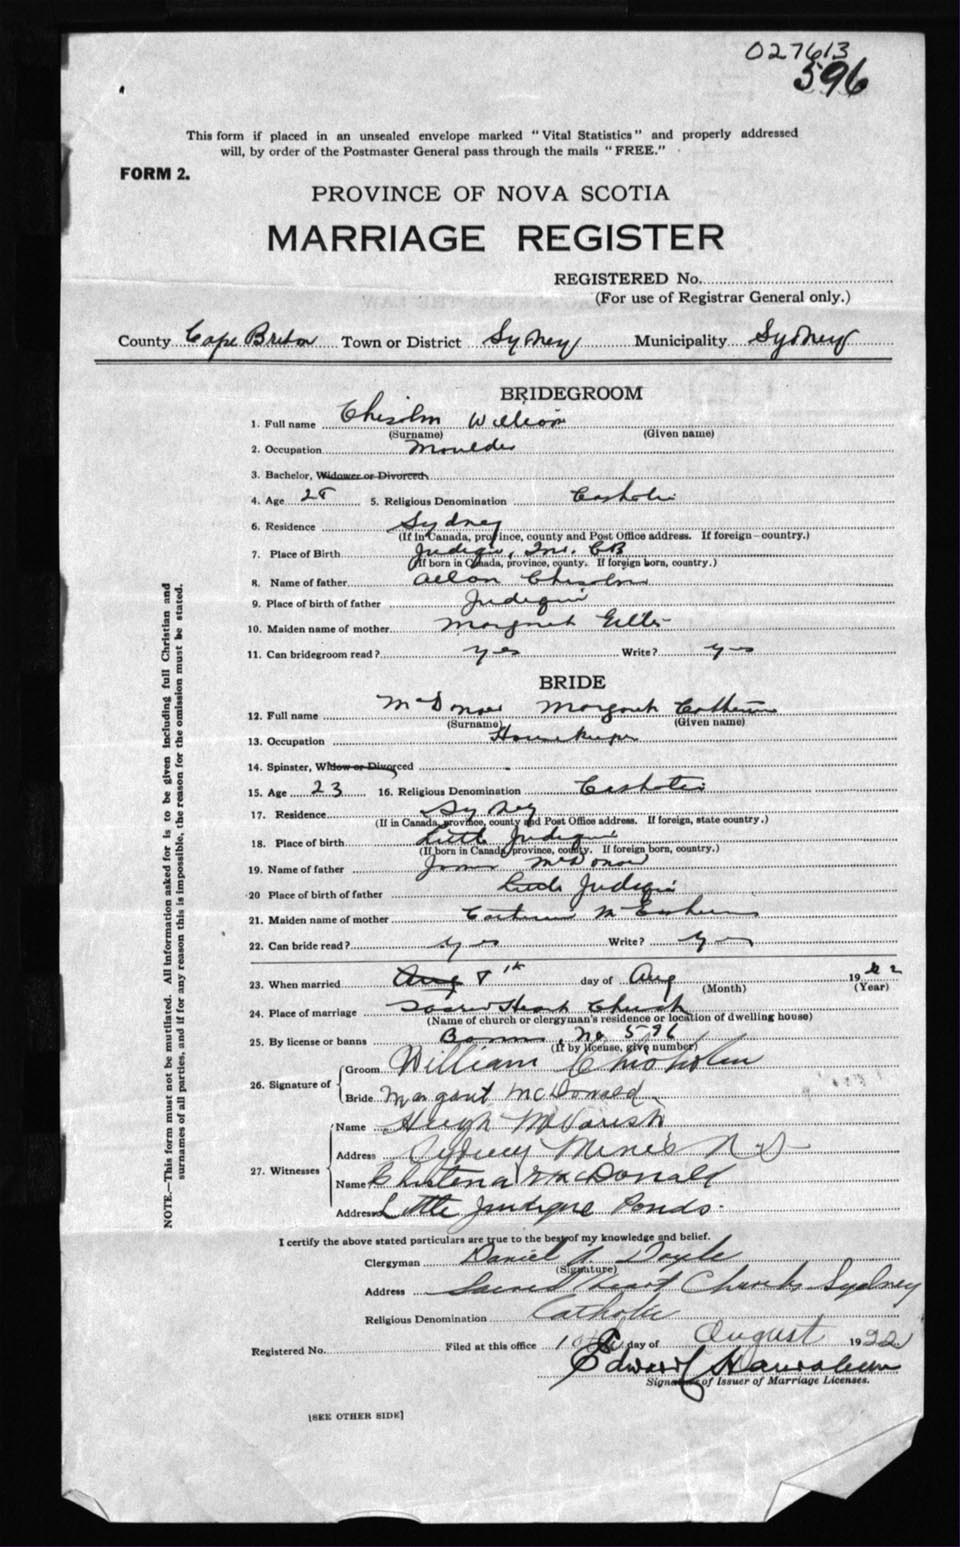 027613
596
This form if placed in an unsealed envelope marked "Vital Statistics" and properly addressed
will, by order of the Postmaster General pass through the mails "FREE."
FORM 2.
PROVINCE OF NOVA SCOTIA
MARRIAGE REGISTER
REGISTERED No.
(For use of Registrar General only.)
County Cape Breton Town or District Sydney Municipality Sydney
BRIDEGROOM
1. Full name Chisolm William
(Surname) (Given name)
2. Occupation Moulder
3. Bachelor, Widower or Divorced
4. Age 28 5. Religious Denomination Catholic
6. Residence Sydney
(If in Canada, province, county and Post Office address. If foreign—country.)
7. Place of Birth Judique, Inv. CB
(If born in Canada, province, county. If foreign born, country.)
8. Name of father Allan Chisolm
9. Place of birth of father Judique
10. Maiden name of mother Margaret Gillis
11. Can bridegroom read? yes Write? yes
BRIDE
12. Full name McDonald Margaret Catherine
(Surname) (Given name)
13. Occupation Housekeeper
14. Spinster, Widow or Divorced
15. Age 23 16. Religious Denomination Catholic
17. Residence Sydney
(If in Canada, province, county and Post Office address. If foreign, state country.)
18. Place of birth Little Judique
(If born in Canada, province, county. If foreign born, country.)
19. Name of father McDonald
20 Place of birth of father Little Judique
21. Maiden name of mother Catherine
22. Can bride read? yes Write? yes
23. When married Aug 8th day of Aug 1922
(Month) (Year)
24. Place of marriage Sacred Heart Church
(Name of church or clergyman's residence or location of dwelling house)
25. By license or banns Banns, No 596
(If by license, give number)
26. Signature of
Groom William Chisholm
Bride Margaret McDonald
27. Witnesses
Name Hugh McVarish
Address Sydney Mines N S
Name Christena McDonald
Address Little Judique Ponds.
I certify the above stated particulars are true to the best of my knowledge and belief.
Clergyman Daniel Doyle
(Signature)
Address Sacred Heart Church Sydney
Religious Denomination Catholic
Registered No. Filed at this office day of August 1922
Edward
Signature of Issuer of Marriage Licenses.
[SEE OTHER SIDE]
NOTE.—This form must not be mutilated. All information asked for is to be given including full Christian and
surnames of all parties, and if for any reason this is impossible, the reason for the omission must be stated.